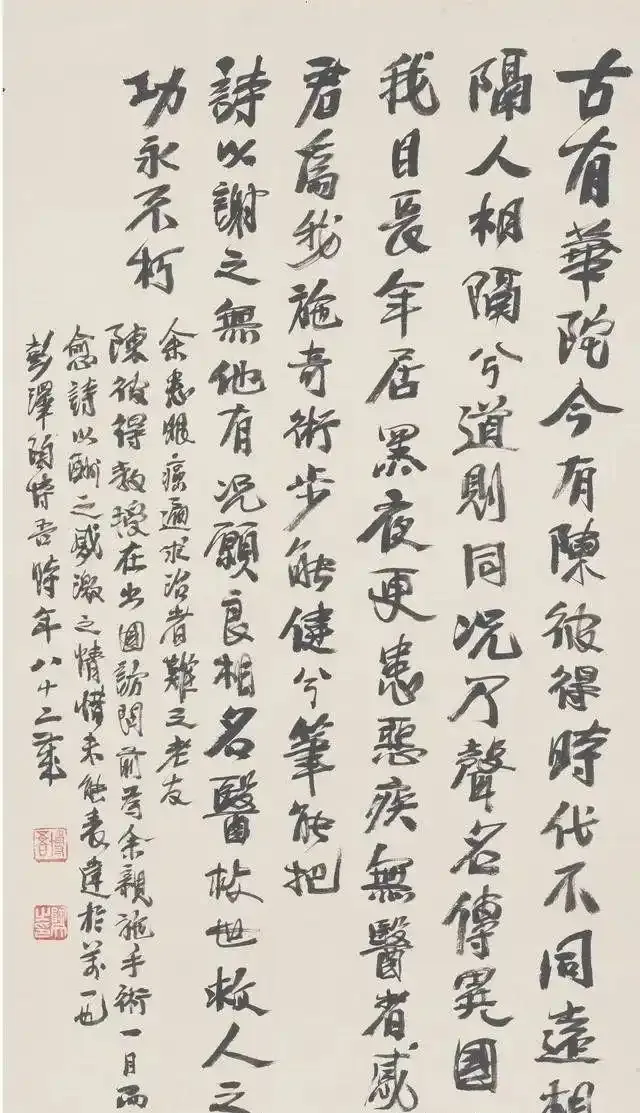 古有華陀今有陳彼得時代不同遠相
隔人相隔兮道則同况乃聲名傳異國
我目長年居黑夜更患惡疾無醫者感
君為我施奇術步能健兮筆能把
詩以謝之無他有况願良相名醫救世救人之
功永不朽
余患眼癌遍求治者難之老友
陳彼得教授在出國訪問前為余親施手術一月而
愈詩以酬之感激之情惜未能表達於萬一也
彭澤陶博吾時年八十二歲